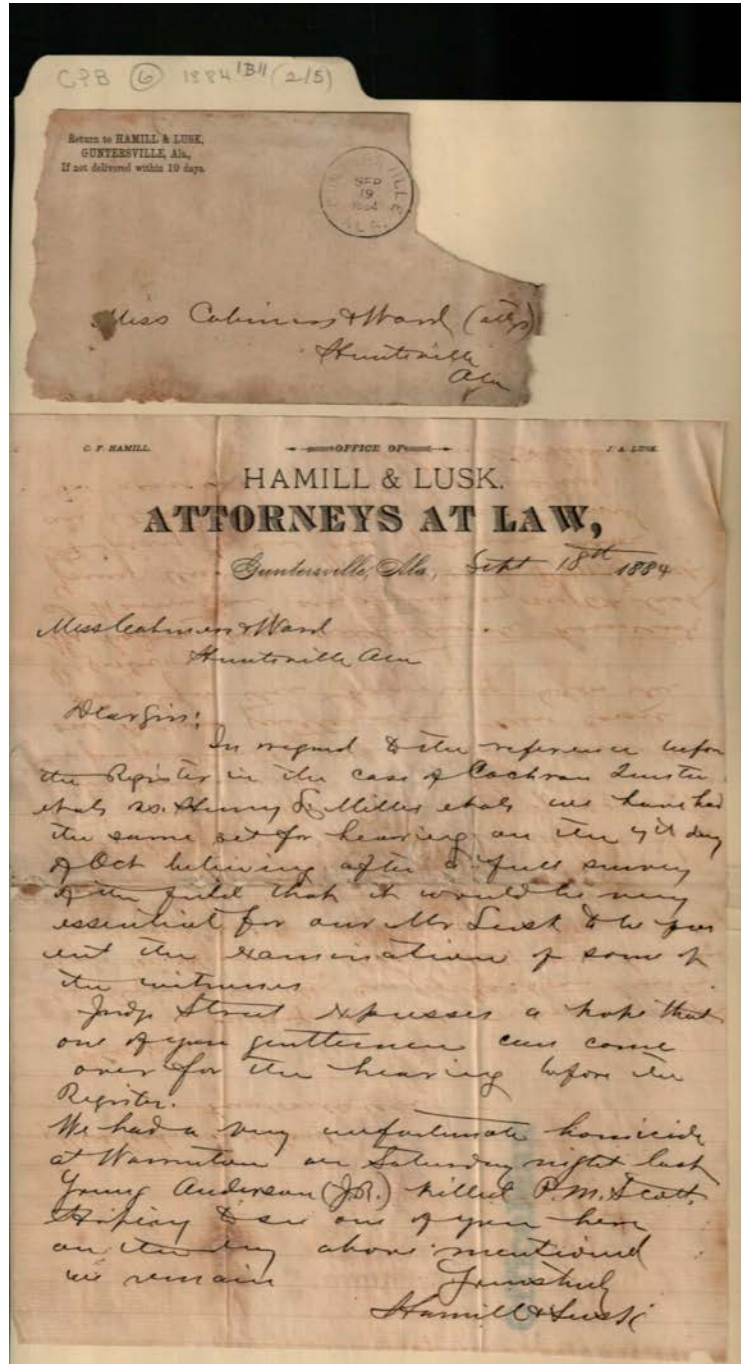 CPB (6) 1884 "B" (2/5)
Return to HAMILL & LUSK,
GUNTERSVILLE, Ala.,
If not delivered within 10 days
GUNTERSVILLE
SEP
19
1884
ALA.
Miss Cabiness & Ward (attys)
Huntsville
Ala
C. F. HAMILL.
OFFICE OF
J. A. LUSK.
HAMILL & LUSK.
ATTORNEYS AT LAW,
Guntersville, Ala., Sept 18th 1884
Mess Cabiness & Ward
Huntsville Ala
Dear Sirs:
In regard to the reference before
the Register in the case of Cochran
et als vs. Henry Miller et als we have had
the same set for hearing on the day
of Oct believing after a full survey
of the field that it would be very
essential for our Mr Lusk to be pres
ent the examination of some of
the witnesses
Judge Street expresses a hope that
one of you gentlemen can come
over for the hearing before the
Register.
We had a very unfortunate homicide
at Warrenton on Saturday night last
Young Anderson (JR.) killed P. M. Scott.
Hoping to see one of you here
on the day above mentioned
we remain Yours truly
Hamill & Lusk